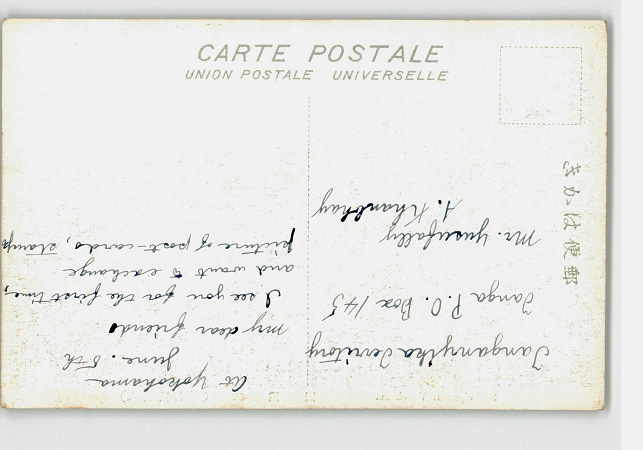 CARTE POSTALE
UNION POSTALE UNIVERSELLE
郵便はかき
At Yokohama
June. 5th
My dear friends
I see you for the first time,
and want to exchange
picture of post-cards, stamp
Tanganyika Territory
Tanga P.O. Box 145
Mr. Yusufally
A. Khanbhay